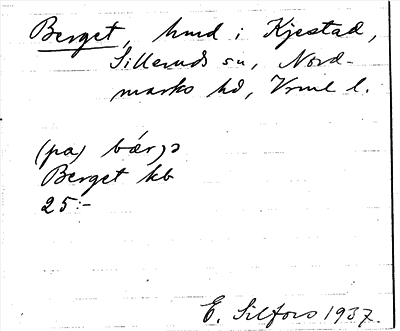 Berget, hmd i Kjestad,
Silleruds sn, Nord-
marks hd, Vrml l.
(pa) bær̀jə
Berget kb
25:-
E. Silfors 1937.